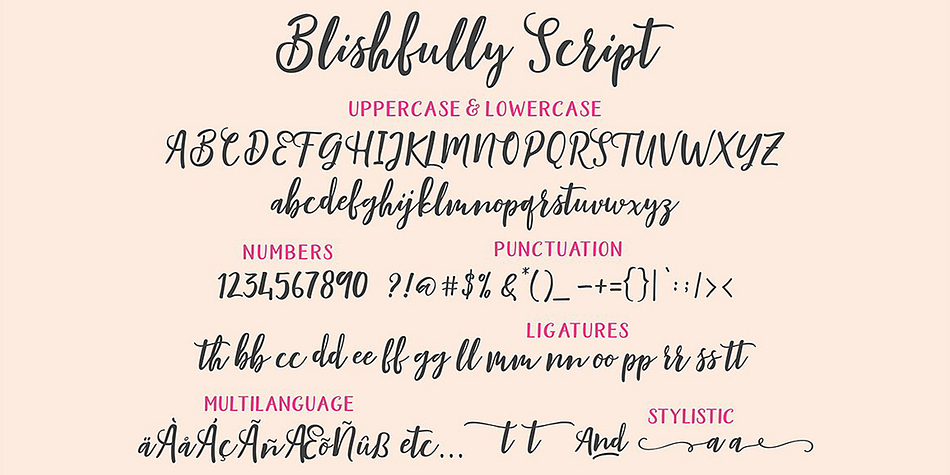 Blishfully Script
UPPERCASE & LOWERCASE
ABCDEFGHIJKLMNOPQRSTUVWXYZ
abcdefghijklmnopqrstuvwxyz
NUMBERS
PUNCTUATION
1234567890 ?!@#$%&*()_-+={}|`:;/><
LIGATURES
th bb cc dd ee ff gg ll mm nn oo pp rr ss tt
MULTILANGUAGE
STYLISTIC
äÀåÁçÃñÆõÑûß etc... t t And a a